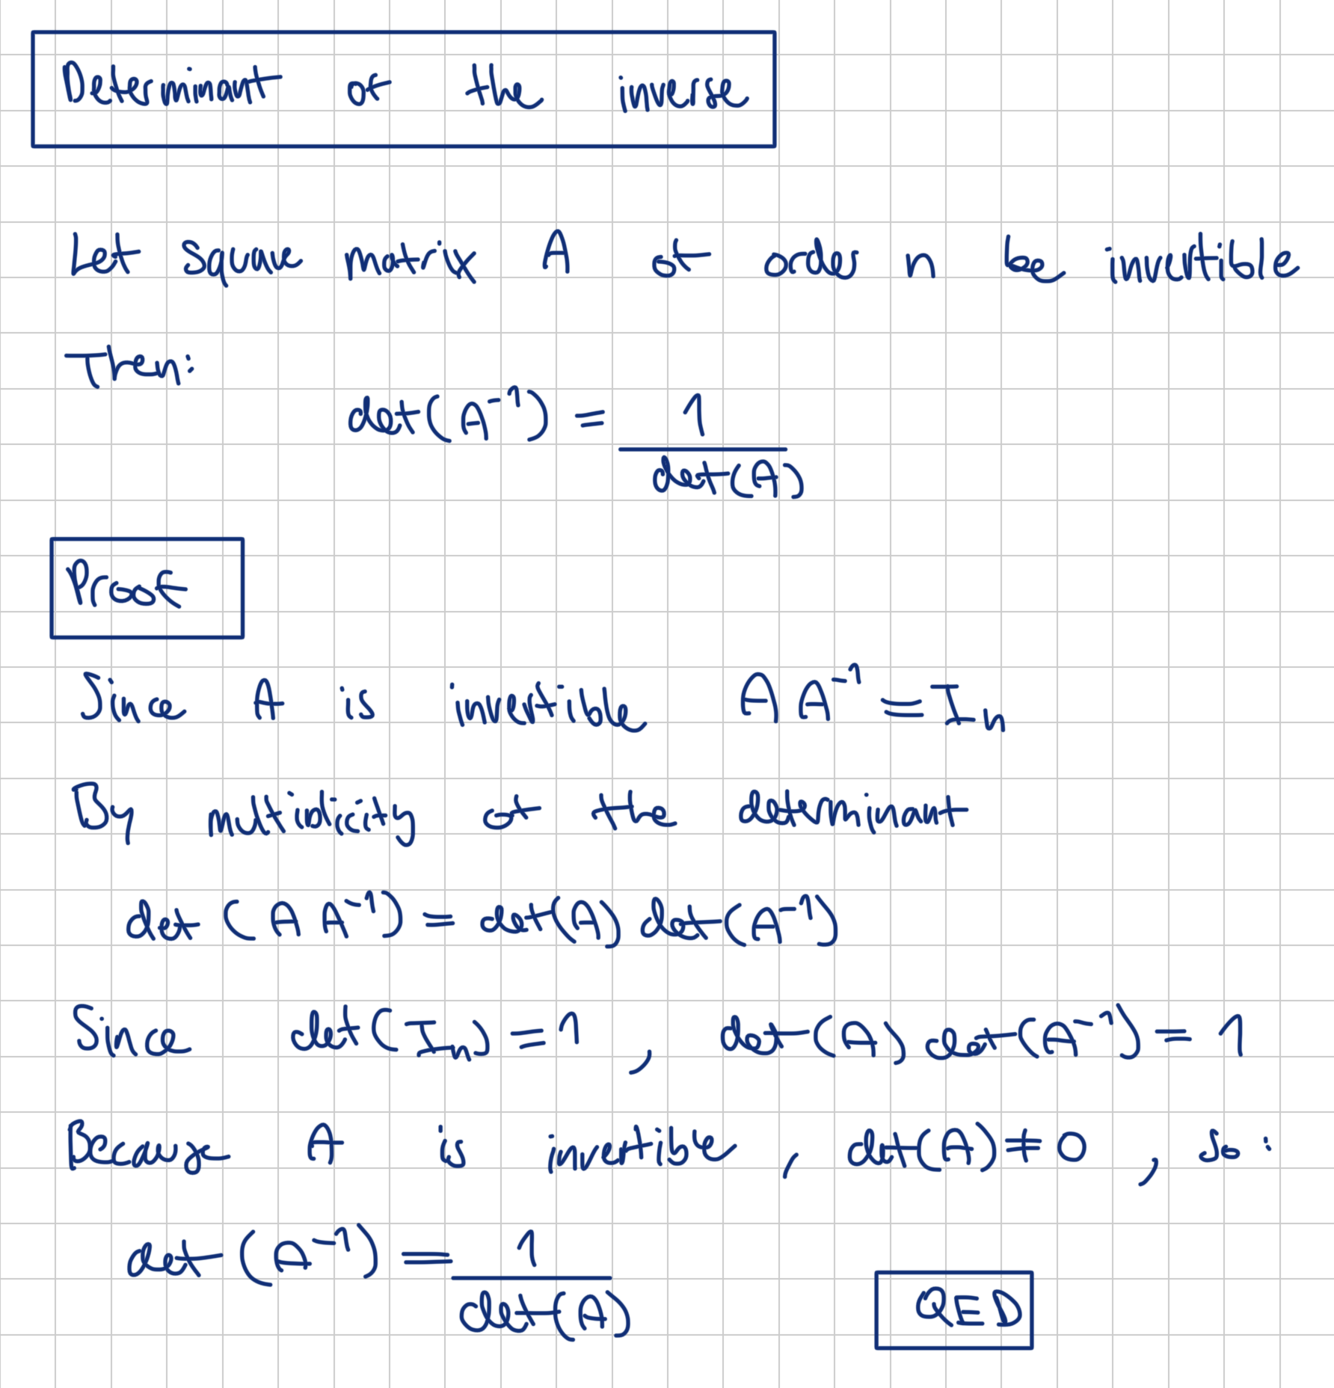 Determinant of the inverse
Let square matrix A of order n be invertible
Then:
det(A⁻¹) = 1/det(A)
Proof
Since A is invertible A A⁻¹ = Iₙ
By multiplicity of the determinant
det (A A⁻¹) = det(A) det(A⁻¹)
Since det(Iₙ) = 1, det(A) det(A⁻¹) = 1
Because A is invertible, det(A) ≠ 0, so:
det (A⁻¹) = 1/det(A)
QED